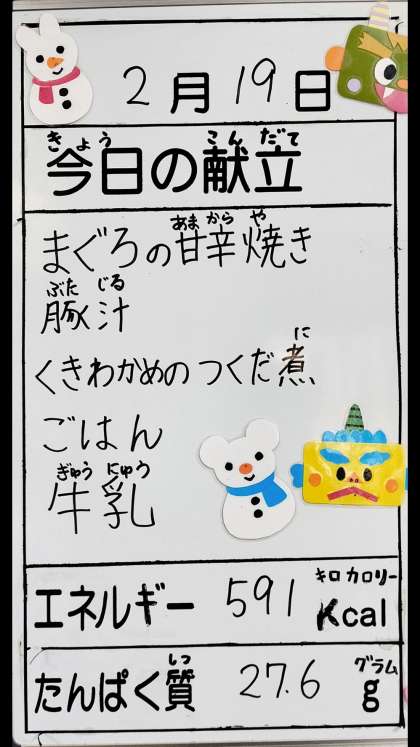 2月19日
きょう こんだて
今日の献立
あまからや
まぐろの甘辛焼き
ぶたじる
豚汁
に
くきわかめのつくだ煮
ごはん
ぎゅうにゅう
牛乳
キロカロリー
エネルギー 591 Kcal
しつ グラム
たんぱく質 27.6 g